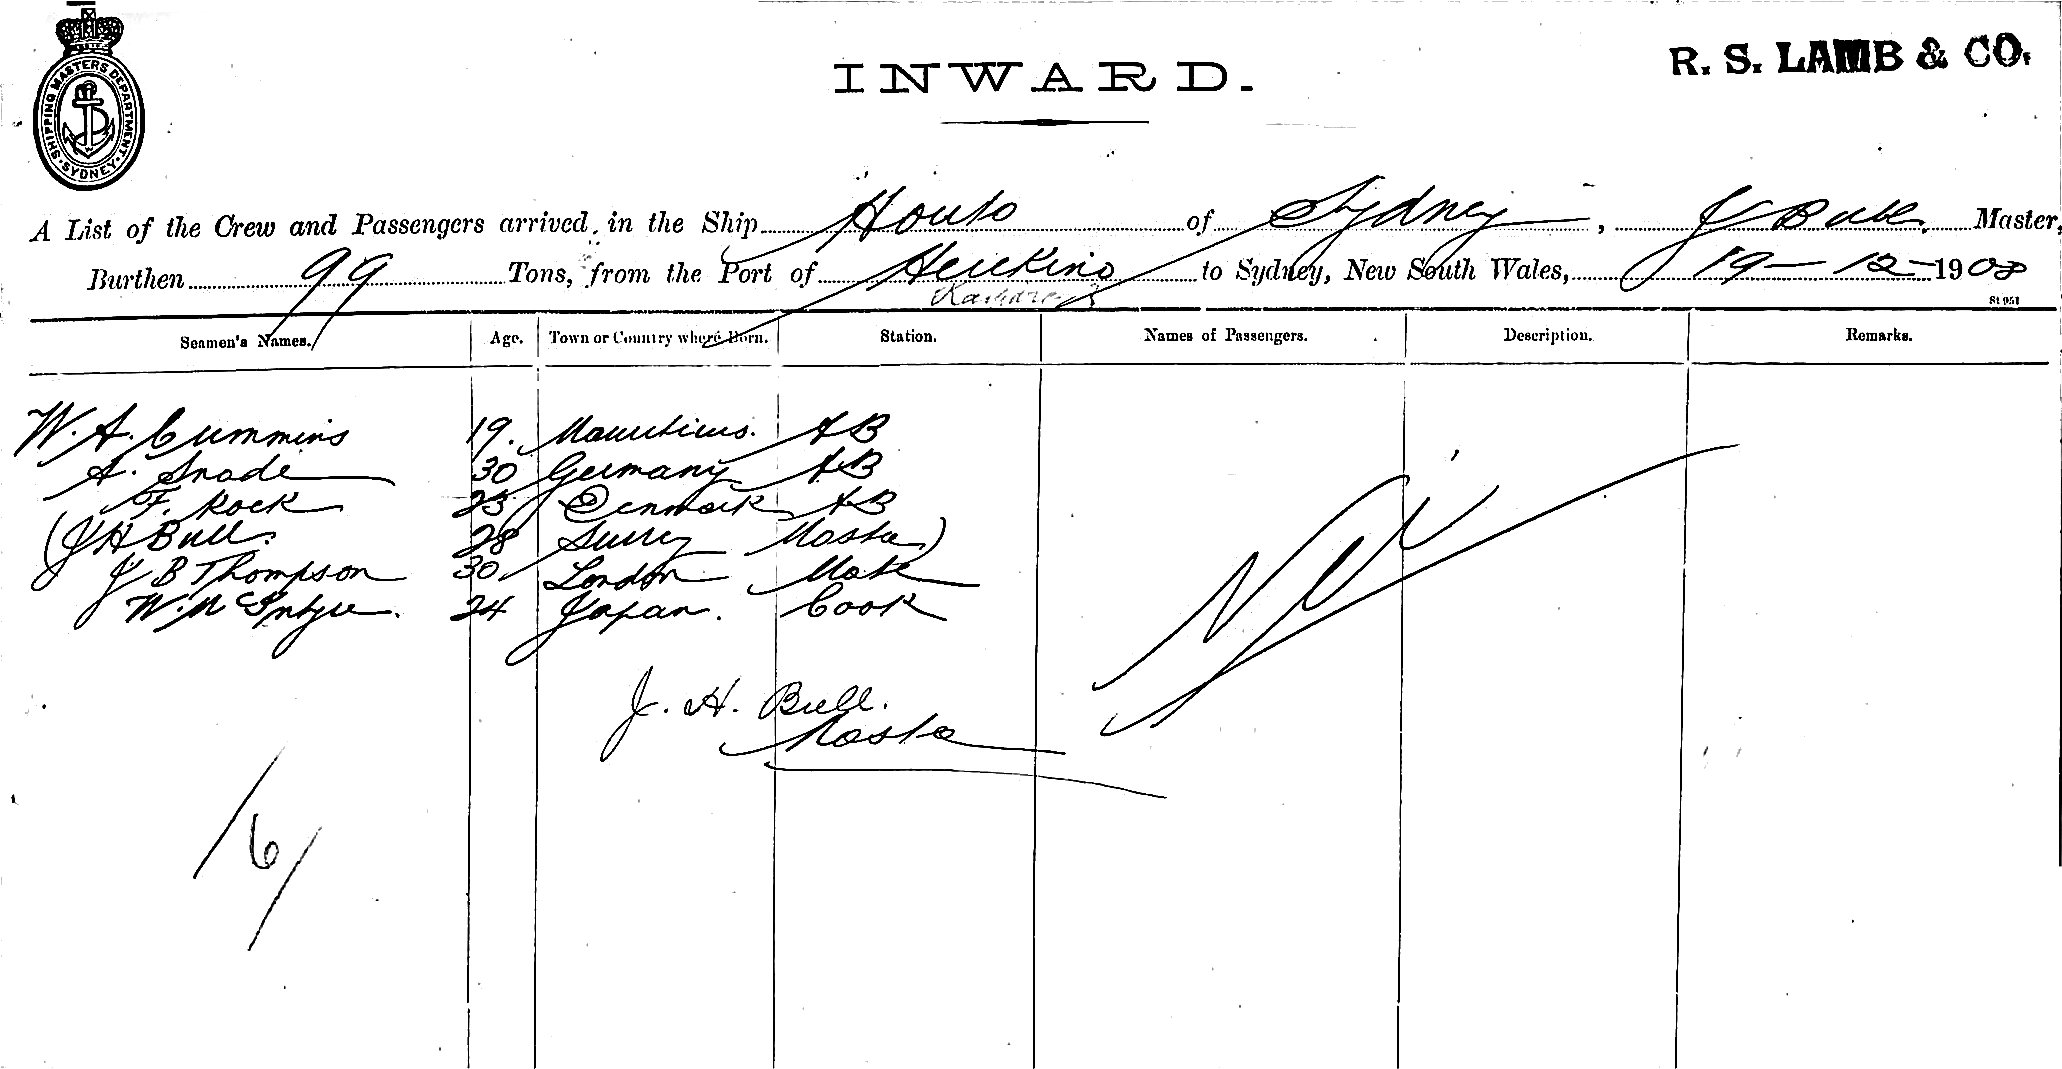 SHIPPING MASTERS DEPARTMENT · SYDNEY ·
R. S. LAMB & CO.
INWARD.
A List of the Crew and Passengers arrived in the Ship Houto of Sydney, J Bull Master,
Burthen 99 Tons, from the Port of Herekino to Sydney, New South Wales, 19-12-1908
St 951
Seamen's Names. Age. Town or Country where Born. Station. Names of Passengers. Description. Remarks.
W. A. Cummins 19. Mauritius. AB
A. Snade 30 Germany AB
F. Rock 23 Denmark AB
(J H Bull. 28 Surry Master)
J B Thompson 30 London Mate
W. McIntyre. 24 Japan. Cook
Nil
J. H. Bull.
Master
/6/